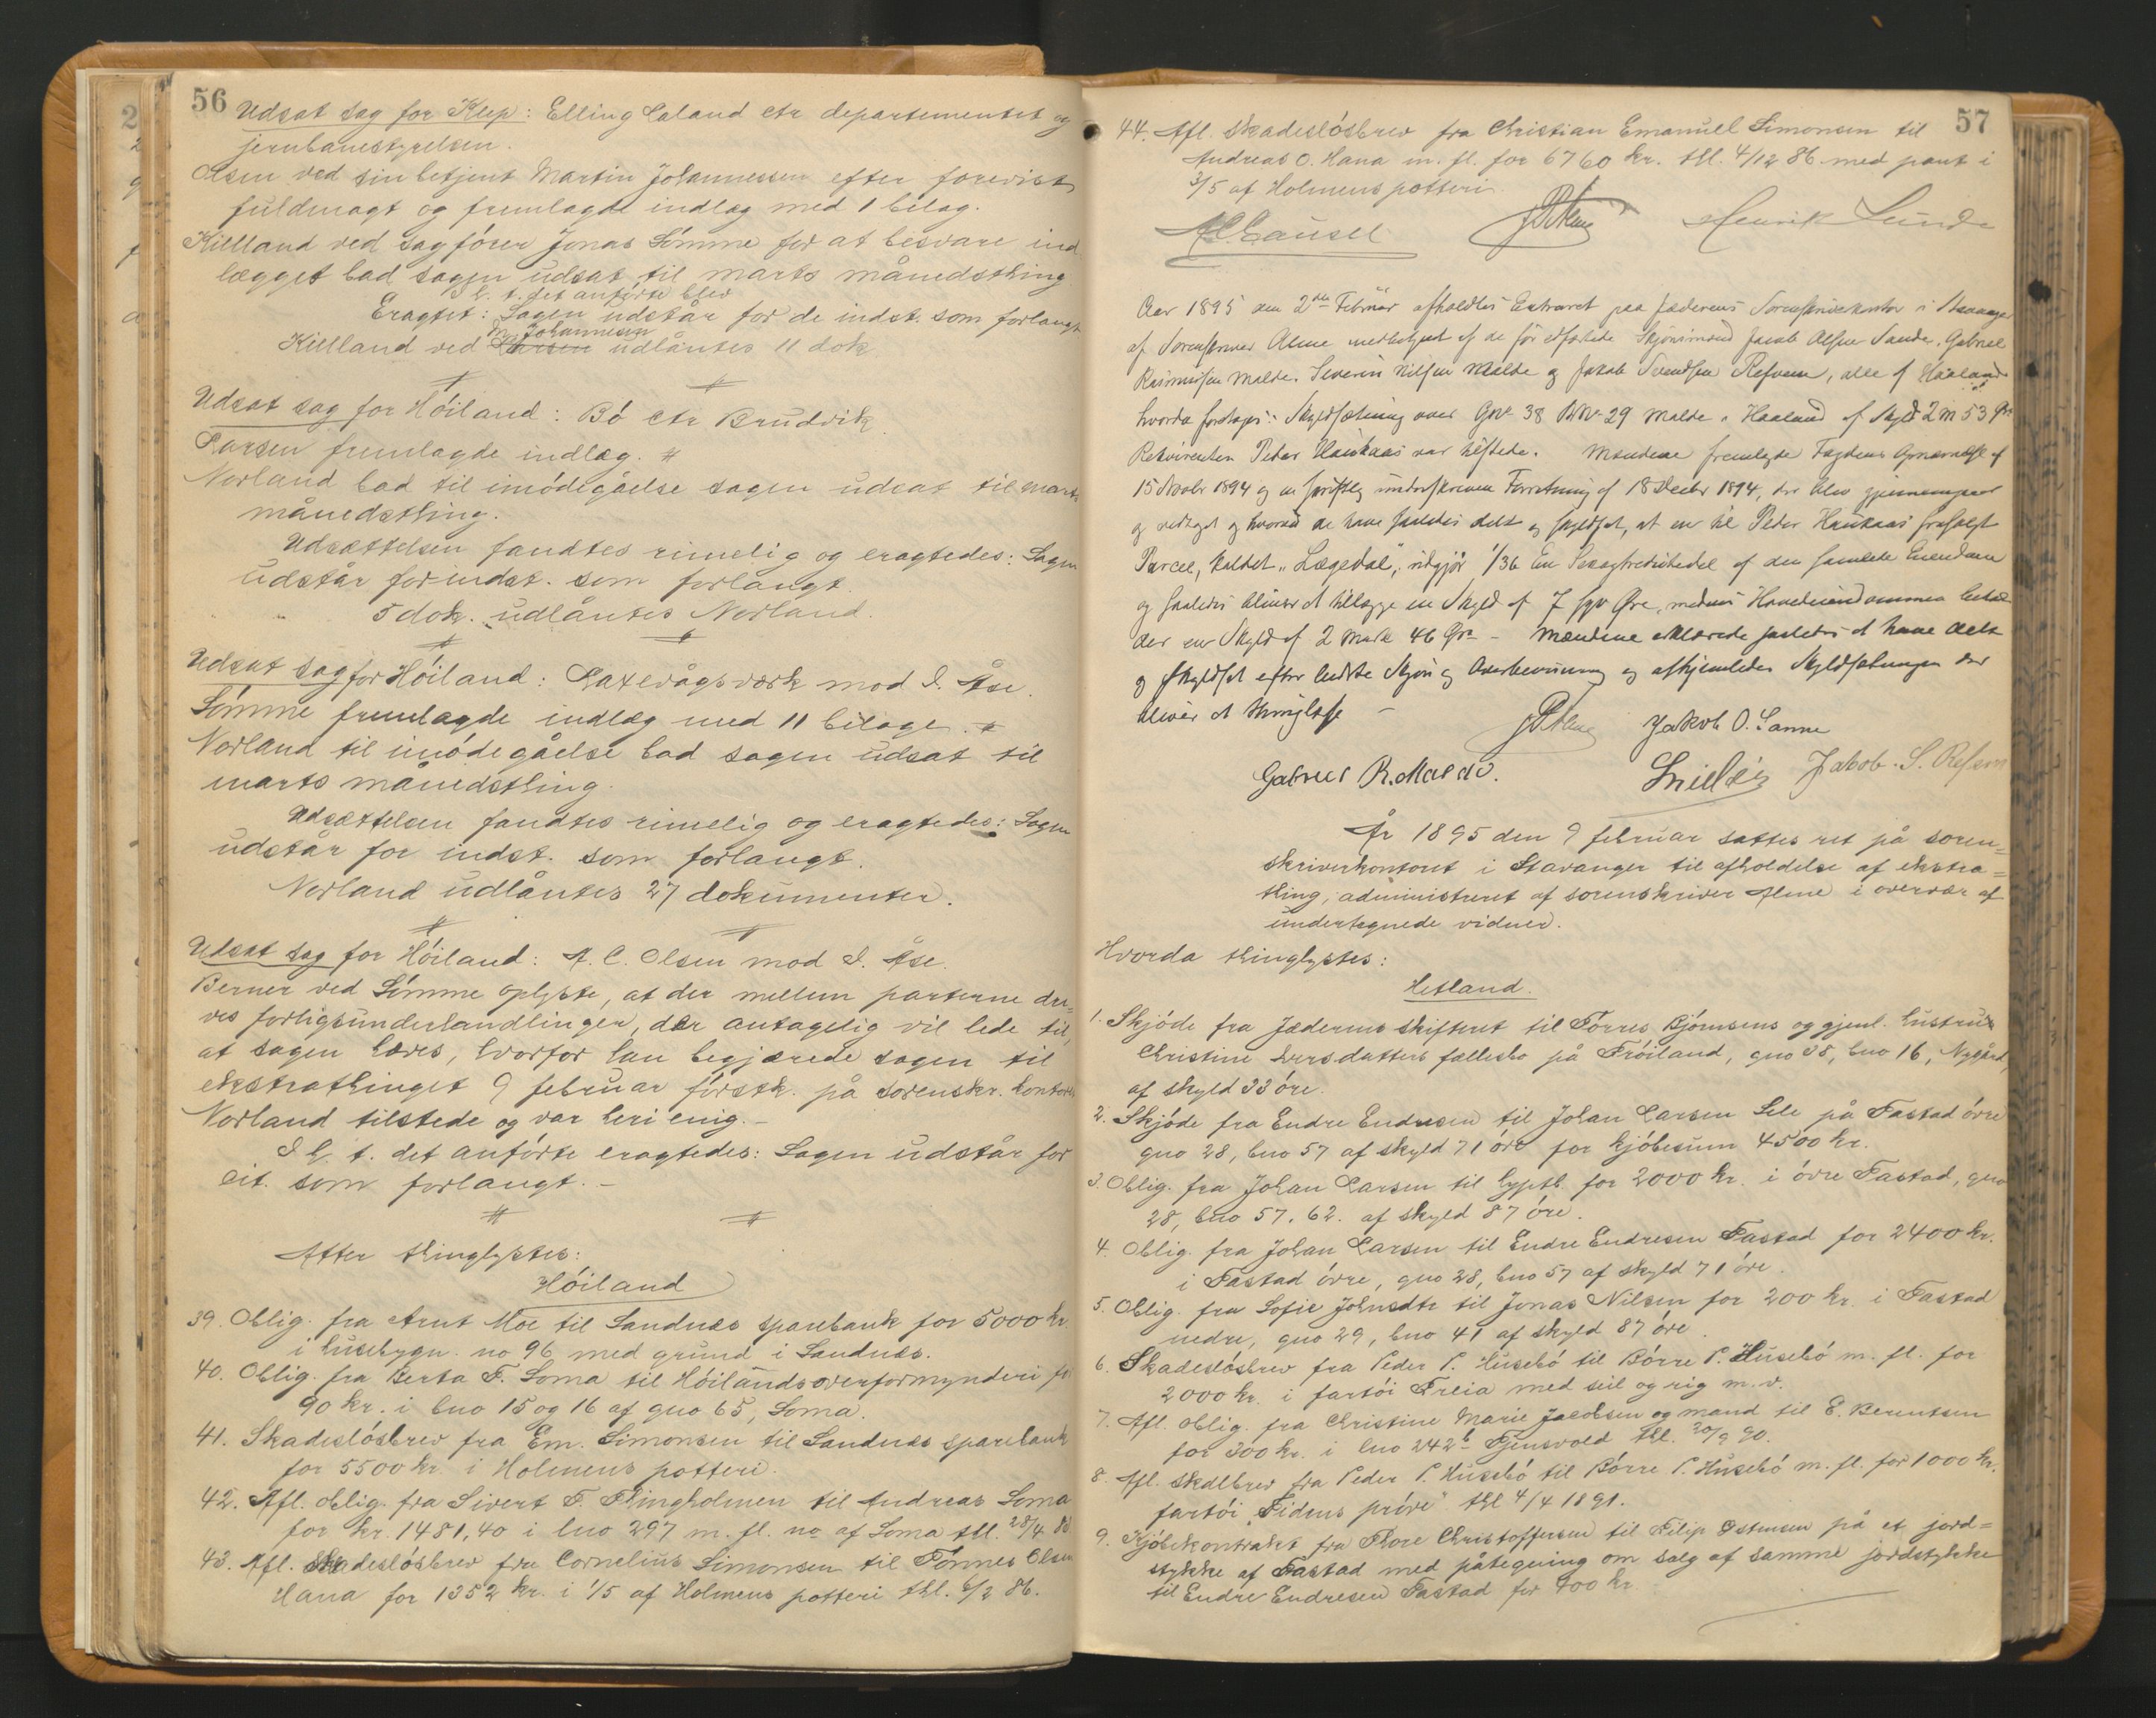 56
Udsat sag for Klep: Elling Laland ctr departementet og
jernbanestyrelsen.
Olsen ved sin betjent Martin Johannessen efter forevist
fuldmagt og fremlagde indlæg med 1 bilag.
Kielland ved sagfører Jonas Sømme for at besvare ind
lægget bad sagen udsat til marts månedsthing
I h. t. det anførte blev
Eragtet: Sagen udstår for de indst. som forlangt
M. Johannesen
Kielland ved Larsen udlåntes 11 dok.
Udsat sag for Høiland: Bø ctr Brudvik.
Larsen fremlagde indlæg. #
Norland bad til imødegåelse sagen udsat til marts
månedsthing.
Udsættelsen fandtes rimelig og eragtedes: Sagen
udstår for indst. som forlangt.
5 dok. udlåntes Norland.
Udsat sag for Høiland: Laxevågs værk mod I. Åse.
Sømme fremlagde indlæg med 11 bilage. #
Norland til imødegåelse bad sagen udsat til
marts månedsthing.
Udsættelsen fandtes rimelig og eragtedes: Sagen
udstår for indst. som forlangt.
Norland udlåntes 27 dokumenter.
Udsat sag for Høiland: A. C. Olsen mod I. Åse.
Berner ved Sømme oplyste, at der mellem parterne dri=
ves forligsunderhandlinger, der antagelig vil lede til,
at sagen hæves, hvorfor han begjærede sagen til
ekstrathinget 9 februar førstk. på sorenskr. kontoret
Norland tilstede og var heri enig.-
I h. t. det anførte eragtedes: Sagen udstår for
cit. som forlangt.-
Atter thinglystes:
Høiland
39. Oblig. fra Arnt Moe til Sandnæs sparebank for 5000 kr.
i husebygn. no 96 med grund i Sandnæs.
40. Oblig. fra Berta T. Soma til Høilands overformynderi for
90 kr. i bno 15 og 16 af gno 65, Soma.
41. Skadesløsbrev fra Em. Simonsen til Sandnæs sparebank
for 5500 kr. i Holmens potteri.
42. Afl. oblig. fra Sivert T. Thingholmen til Andreas Soma
for kr. 1481,40 i bno 297 m. fl. no af Soma thl. 28/4
43. Afl. Skadesløsbrev fra Cornelius Simonsen til Tønnes Olsen
Hana for 1352 kr. i 1/5 af Holmens potteri thl. 6/2 86.
57
44. Afl. skadesløsbrev fra Christian Emanuel Simonsen til
Andreas O. Hana m. fl. for 6760 kr. thl. 4/12 86 med pant i
3/5 af Holmens potteri.
Henrik Lunde
Aar 1895 den 2den Februar afholdtes Extraret paa Jæderens Sorenskriverkontor i Stavanger
af Sorenskriver Alme medbetjent af de før edfæstede Skjønsmænd Jacob Olsen Sande, Gabriel
Rasmussen Malde, Severin Nilsen Malde og Jakob Svendsen Refsnes, alle af Haaland
hvorda foretoges: Skyldsætning over Gno 38 Bno 29 Malde i Haaland af Skyld 2 M 53 Øre
Rekvirenten Peder Haukaas var tilstede. Mændene fremlagde Fogdens Opnævnelse af
15 Novbr 1894 og en skriftlig underskreven Forretning af 18 Decbr 1894, der blev gjennemgaaet
og vedtaget og hvorved de have saaledes delt og skyldsat, at en til Peder Haukaas frasolgt
Parcel, kaldet "Lægedal", udgjør 1/36 En Sexogtredivtedel af den samlede Eiendom
og saaledes bliver at tillægge en Skyld af 7 syv Øre, medens Hovedeiendommen behol
der en Skyld af 2 Mark 46 Øre - Mændene erklærede saaledes at have delt
og skyldsat efter bedste Skjøn og Overbevisning og afhjemledes Skyldsætningen der
bliver at thinglæse -
Jakob O. Sanne
Gabriel R. Malde. Jakob. S. Refsnes
År 1895 den 9 februar sattes ret på soren=
skriverkontoret i Stavanger til afholdelse af ekstra=
thing, administreret af sorenskriver Alme i overvær af
undertegnede vidner.
Hvorda thinglystes:
Hetland.
1. Skjøde fra Jæderens skifteret til Torres Bjørnsens og gjenl. hustru
Christine Iversdatters fællesbo på Frøiland, gno 38, bno 16, Nygård,
af skyld 33 øre.
2. Skjøde fra Endre Endresen til Johan Larsen Sele på Tastad øvre
gno 28, bno 57 af skyld 71 øre for kjøbesum 4500 kr.
3. Oblig. fra Johan Larsen til hyptb. for 2000 kr. i øvre Tastad, gno
28, bno 57. 62. af skyld 87 øre.
4. Oblig. fra Johan Larsen til Endre Endresen Tastad for 2400 kr.
i Tastad øvre, gno 28, bno 57 af skyld 71 øre.
5. Oblig. fra Sofie Johnsdtr til Jonas Nilsen for 200 kr. i Tastad
nedre, gno 29, bno 41 af skyld 87 øre.
6. Skadesløsbrev fra Peder P. Husebø til Børre P. Husebø m. fl. for
2000 kr. i fartøi Freia med seil og rig m. v.
7. Afl. oblig. fra Christine Marie Jacobsen og mand til E. Berentsen
for 300 kr. i bno 242 b Tjensvold thl. 20/9 90.
8. Afl. skdlbrev fra Peder P. Husebø til Børre P. Husebø m. fl. for 1000 kr.
fartøi "Tidens prøve" thl 4/4 1891.
9. Kjøbekontrakt fra Thore Christoffersen til Filip Østensen på et jord=
stykke af Tastad med påtegning om salg af samme jordstykke
til Endre Endresen Tastad for 400 kr.